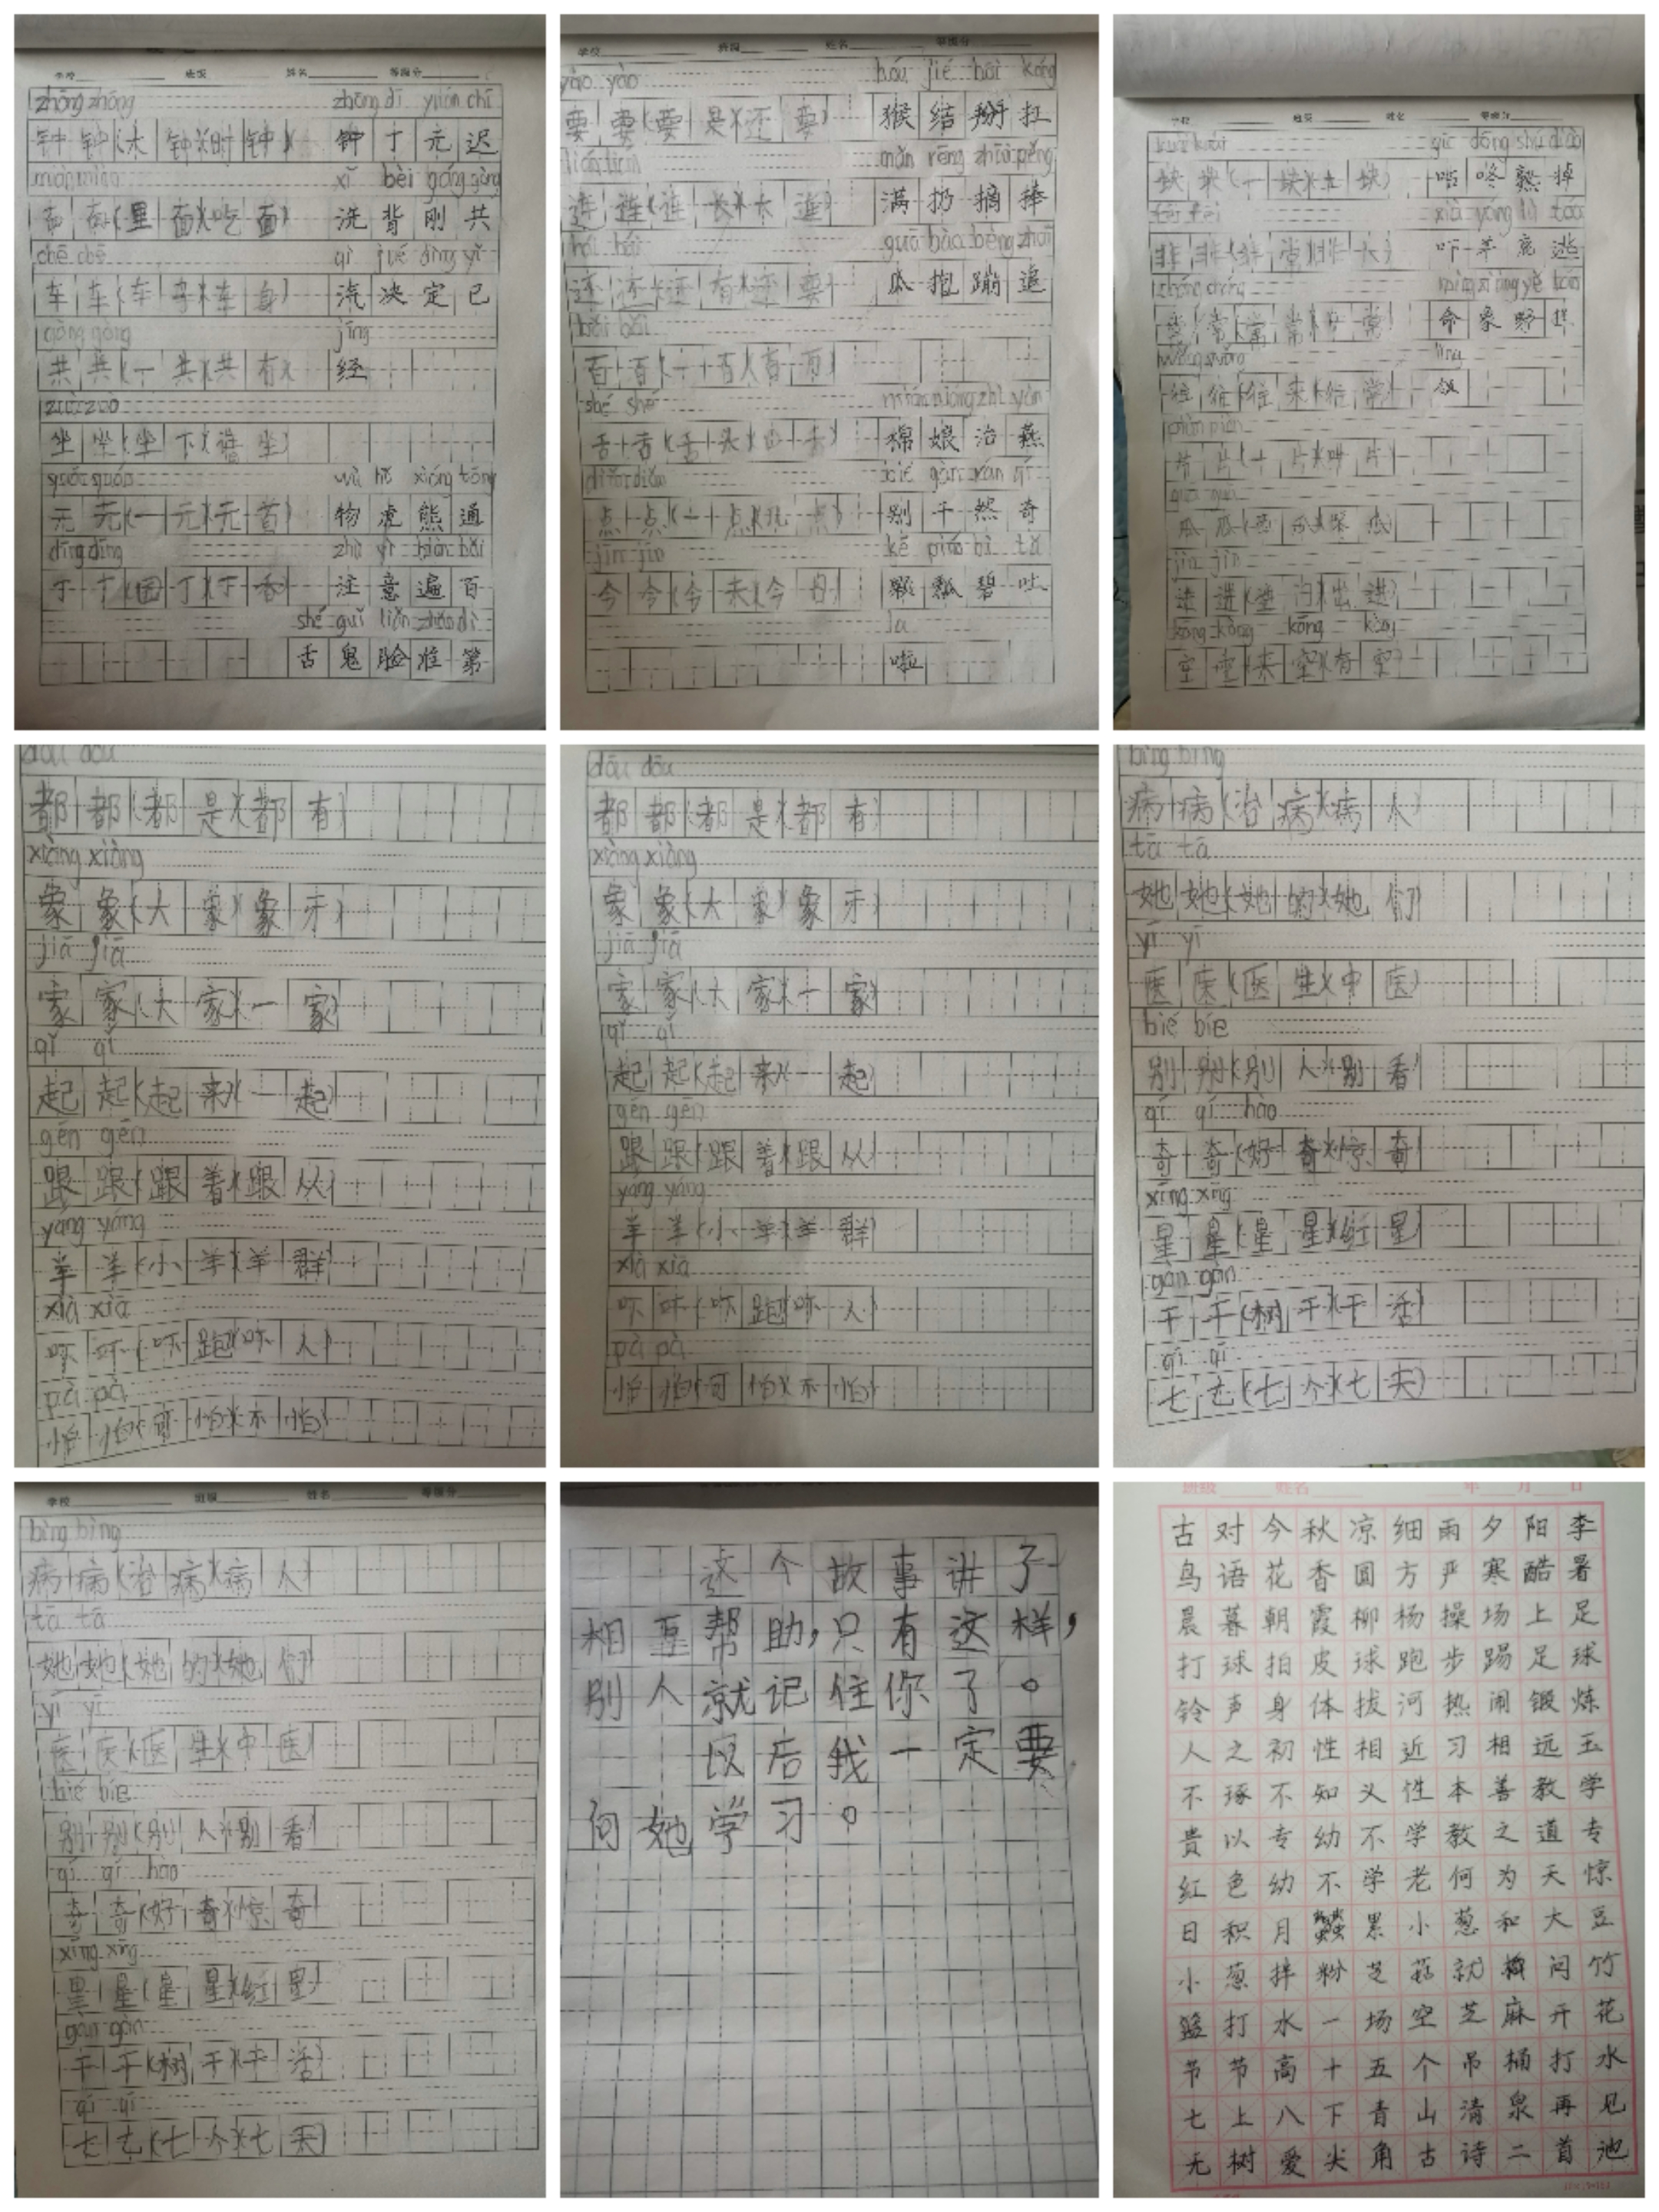 学校 班级 姓名 等级分
zhōng zhōng zhōng dī yuán chí
钟 钟 (木 钟)(时 钟) 钟 丁 元 迟
xǐ bèi gāng gòng
面 面 (里 面)(吃 面) 洗 背 刚 共
chē chē jué dìng yǐ
车 车 (车 车)(车 身) 浇 决 定 已
gòng gòng jīng
共 共 (一 共)(共 有) 经
zuò zuo
坐 坐 (坐 下)( 坐)
wù hǔ xióng tōng
无 无 (一 元)(元 首) 物 虎 熊 通
dīng dīng zhù yì biàn bǎi
丁 丁 (园 丁)(丁 香) 注 意 遍 百
shé guǐ liǎn zhǔn dì
舌 鬼 脸 准 第
学校 班级 姓名 等级分
yào yào hóu jié bāi káng
要 要 (要 是)(还 要) 猴 结 掰 扛
mǎn rēng zhāi pěng
连 连 (连 长)(水 连) 满 扔 摘 捧
hái hái guā bào bèng zhuī
还 还 (还 有)(还 要) 瓜 抱 蹦 追
bǎi bǎi
百 百 (一 百)(百 百)
shé shé mián niáng zhì yàn
舌 舌 (舌 头) 棉 娘 治 燕
diǎn diǎn bié gàn rán qí
点 点 (一 点)( 点) 别 干 然 奇
jīn jīn kē piáo bì tǔ
今 今 (今 天)(今 日) 颗 瓢 碧 吐
la
啦
学校 班级 姓名 等级分
kuài kuài gū dōng shú diào
块 块 (一 块)(土 块) 咕 咚 熟 掉
fēi fēi xià yáng lù táo
非 非 (非 常)(非 大) 吓 羊 鹿 逃
cháng cháng mìng xiàng yě lán
常 常 (常 常)( 常) 命 象 野 拦
wǎng wǎng lǐng
往 往 (往 来)(往 常) 领
piàn piàn
片 片 (一 片)(叶 片)
guā guā
瓜 瓜 (西 瓜)( 瓜)
jìn jìn
进 进 (进 门)(出 进)
kōng kōng kōng kòng
空 空 (天 空)(有 空)
dōu dōu
都 都 (都 是)(都 有)
xiàng xiàng
象 象 (大 象)(象 牙)
jiā jiā
家 家 (大 家)(一 家)
qǐ qǐ
起 起 (起 来)(一 起)
gēn gēn
跟 跟 (跟 着)(跟 从)
yáng yáng
羊 羊 (小 羊)(羊 群)
xià xià
吓 吓 (吓 跑)(吓 人)
pà pà
怕 怕 (可 怕)(不 怕)
dōu dōu
都 都 (都 是)(都 有)
xiàng xiàng
象 象 (大 象)(象 牙)
jiā jiā
家 家 (大 家)(一 家)
qǐ qǐ
起 起 (起 来)(一 起)
gēn gēn
跟 跟 (跟 着)(跟 从)
yáng yáng
羊 羊 (小 羊)(羊 群)
xià xià
吓 吓 (吓 跑)(吓 人)
pà pà
怕 怕 (可 怕)(不 怕)
bìng bìng
病 病 (治 病)(病 人)
tā tā
她 她 (她 的)(她 们)
yī yī
医 医 (医 生)(中 医)
bié bié
别 别 (别 人)(别 看)
qí qí hào
奇 奇 (好 奇)(惊 奇)
xīng xīng
星 星 (星 星)(红 星)
gàn gàn
干 干 (树 干)(干 活)
qī qī
七 七 (七 个)(七 天)
学校 班级 姓名 等级分
bìng bìng
病 病 (治 病)(病 人)
tā tā
她 她 (她 的)(她 们)
yī yī
医 医 (医 生)(中 医)
bié bié
别 别 (别 人)(别 看)
qí qí hào
奇 奇 (好 奇)(惊 奇)
xīng xīng
星 星 (星 星)(红 星)
gàn gàn
干 干 (树 干)(干 活)
qī qī
七 七 (七 个)(七 天)
这个故事讲了
相互帮助,只有这样,
别人就记住你了。
以后我一定要
向她学习。
班级 姓名 年 月 日
古对今秋凉细雨夕阳李
鸟语花香圆方严寒酷暑
晨暮朝霞柳杨操场上足
打球拍皮球跑步踢足球
铃声身体拔河热闹锻炼
人之初性相近习相远玉
不琢不知义性本善教学
贵以专幼不学教之道专
红色幼不学老何为天惊
日积月 累小葱和大豆
小葱拌粉芝菇就 问竹
篮打水一场空芝麻开花
节节高十五个吊桶打水
七上八下青山清泉再见
无树爱尖角古诗二首池